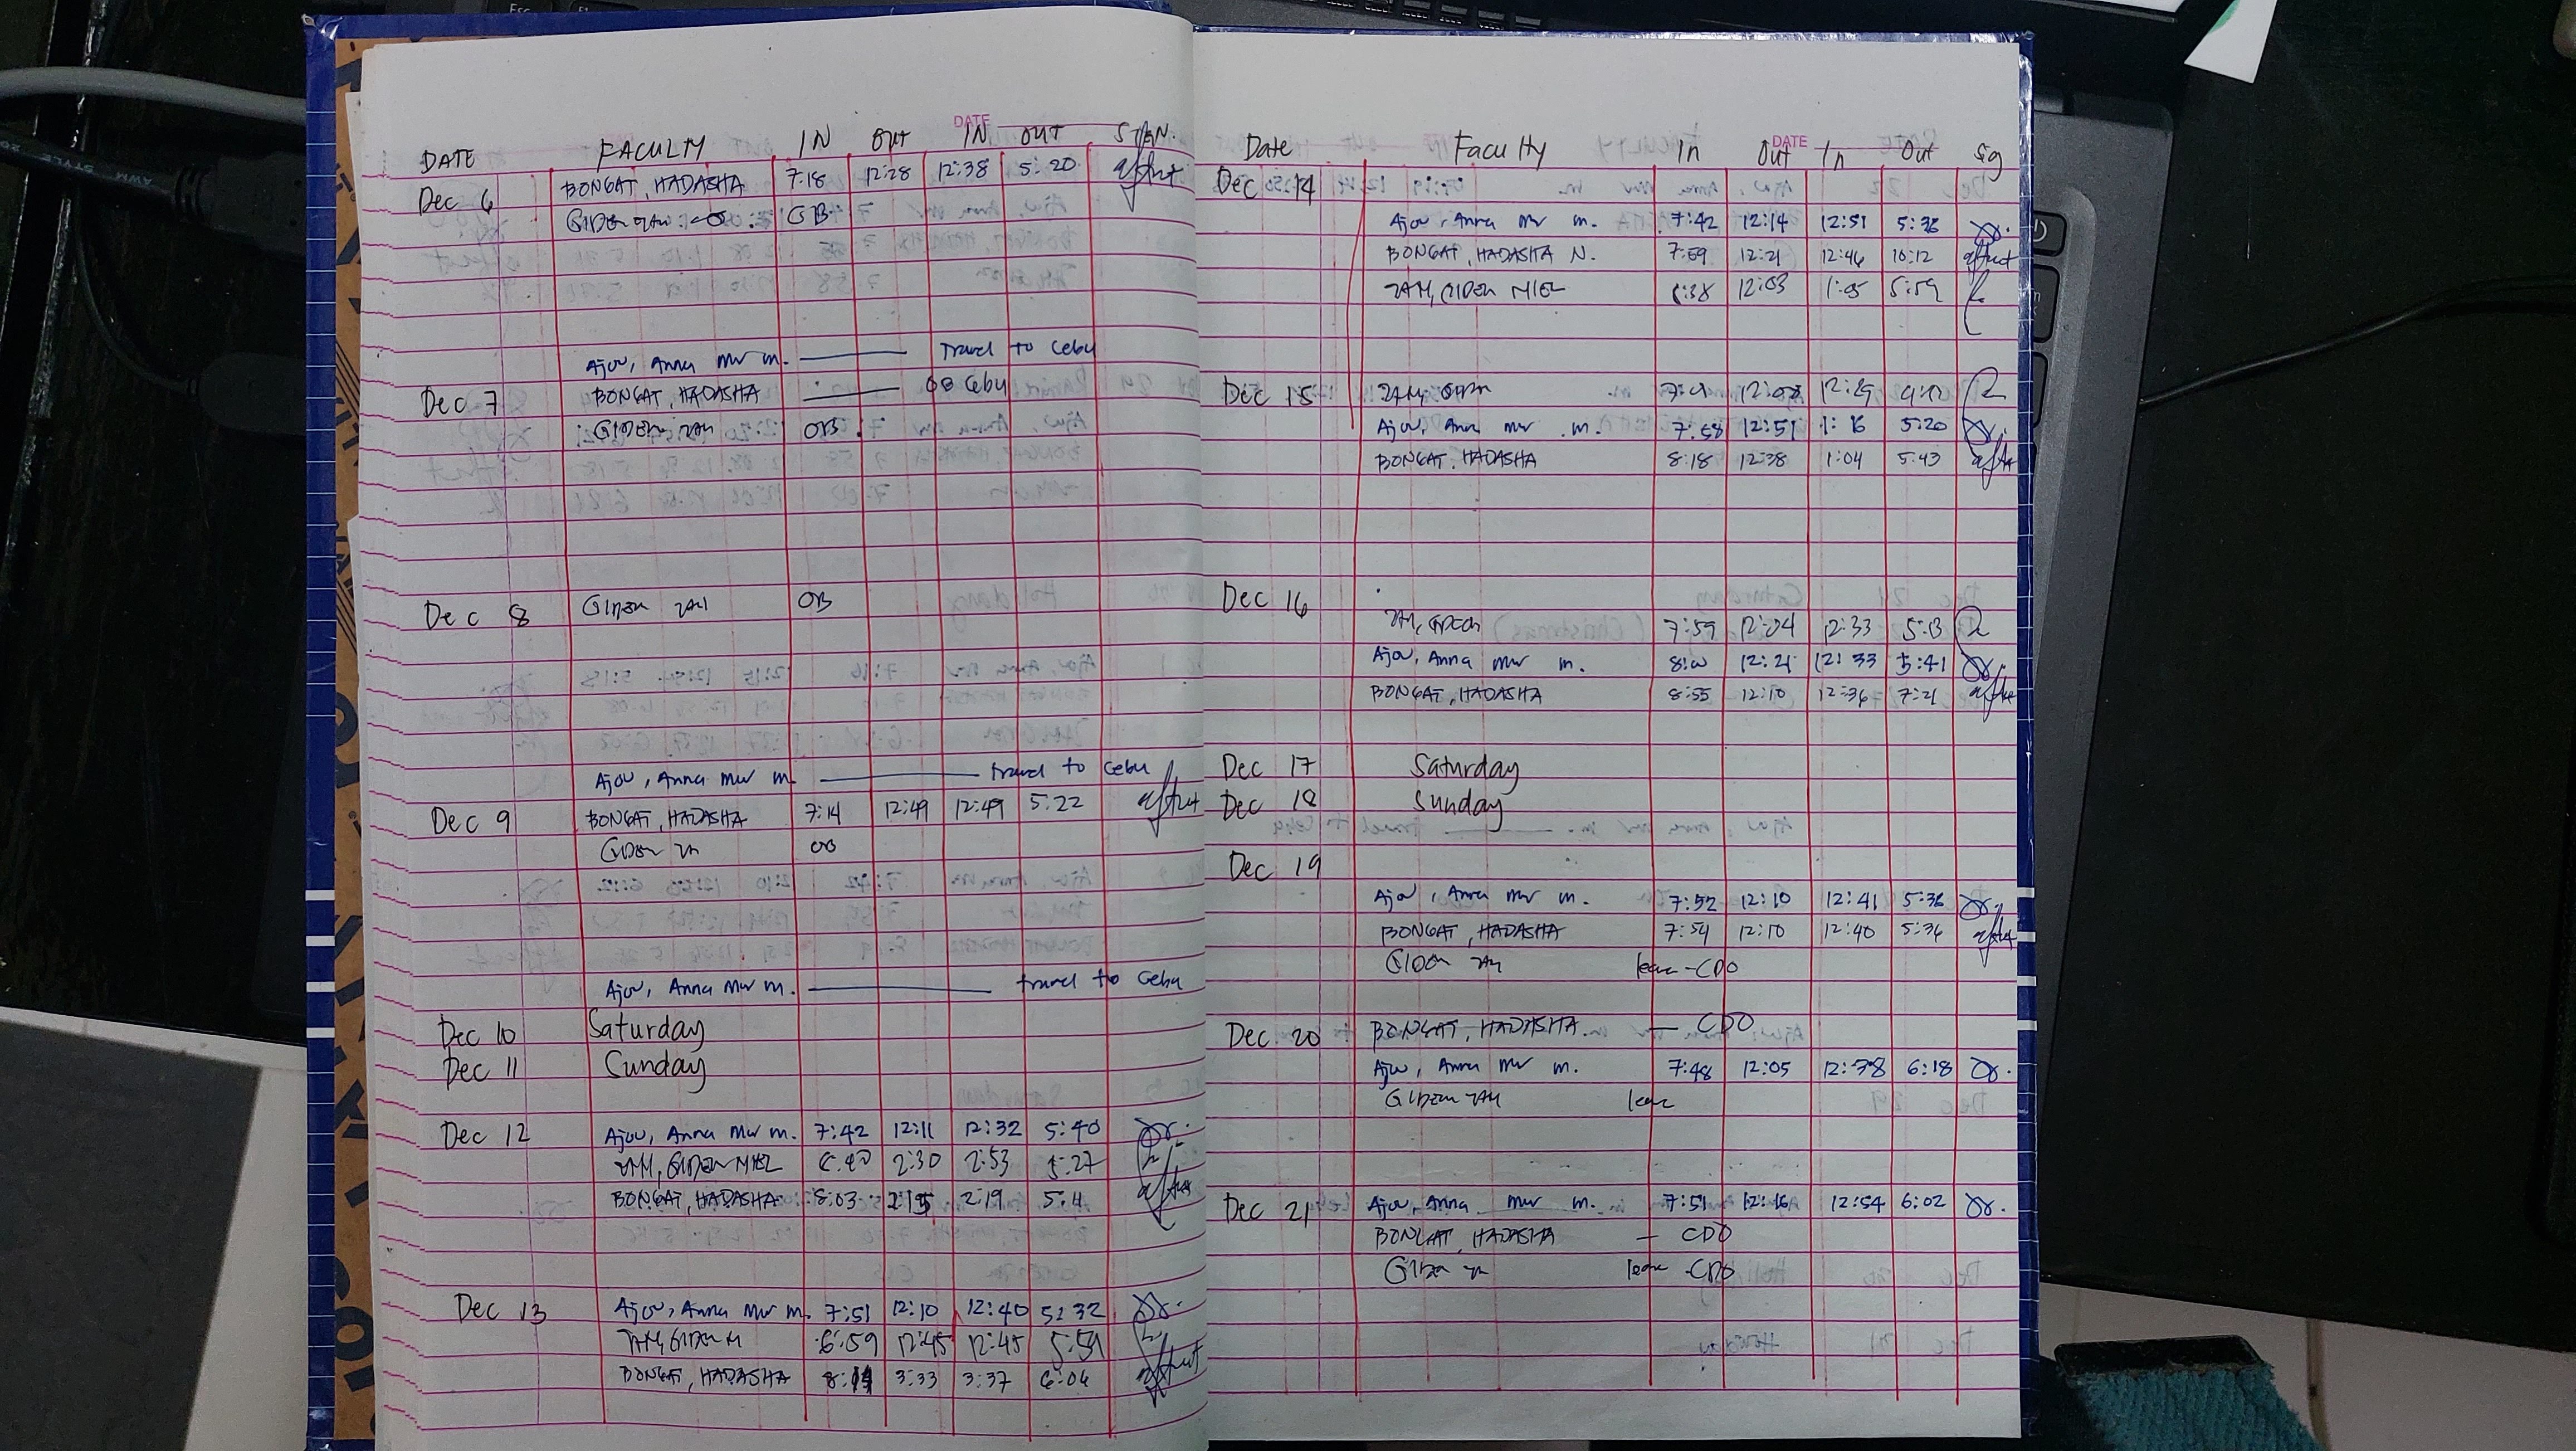 DATE FACULTY IN OUT IN OUT SIGN.
Dec 6 BONGAT, HADASHA 7:18 12:28 12:38 5:20
OB
Ajou, Anna Mw m. travel to Cebu
Dec 7 BONGAT, HADASHA OB Cebu
OB
Dec 8 Giden OB
Ajou, Anna Mw m. travel to Cebu
Dec 9 BONGAT, HADASHA 7:14 12:49 12:49 5:22
Giden OB
Ajou, Anna Mw m. travel to Cebu
Dec 10 Saturday
Dec 11 Sunday
Dec 12 Ajou, Anna Mw m. 7:42 12:11 12:32 5:40
2:30 2:53 5:27
BONGAT, HADASHA 8:03 2:15 2:19
Dec 13 Ajou, Anna Mw m. 7:51 12:10 12:40 5:32
6:59 12:45 12:45 5:59
BONGAT, HADASHA 3:33 3:37 6:04
Date Faculty In Out In Out Sig
DATE
DATE
Dec 14
Ajou, Anna Mw m. 7:42 12:14 12:51 5:36
BONGAT, HADASHA N. 7:59 12:21 12:46 10:12
12:03 1:05 5:59
Dec 15
Ajou, Anna Mw m. 7:58 12:51 1:16 5:20
BONGAT, HADASHA 8:18 12:38 1:04 5:43
Dec 16
7:59 12:04 12:33 5:13
Ajou, Anna Mw m. 12:21 12:33 5:41
BONGAT, HADASHA 8:55 12:10 12:36 7:21
Dec 17 Saturday
Dec 18 Sunday
Dec 19
Ajou, Anna Mw m. 7:52 12:10 12:41 5:36
BONGAT, HADASHA 7:54 12:10 12:40 5:36
leave - CDO
Dec 20 BONGAT, HADASHA. — CDO
Ajou, Anna Mw m. 7:48 12:05 12:38 6:18
leave
Dec 21 Ajou, Anna Mw m. 7:51 12:16 12:54 6:02
BONGAT, HADASHA — CDO
leave - CDO